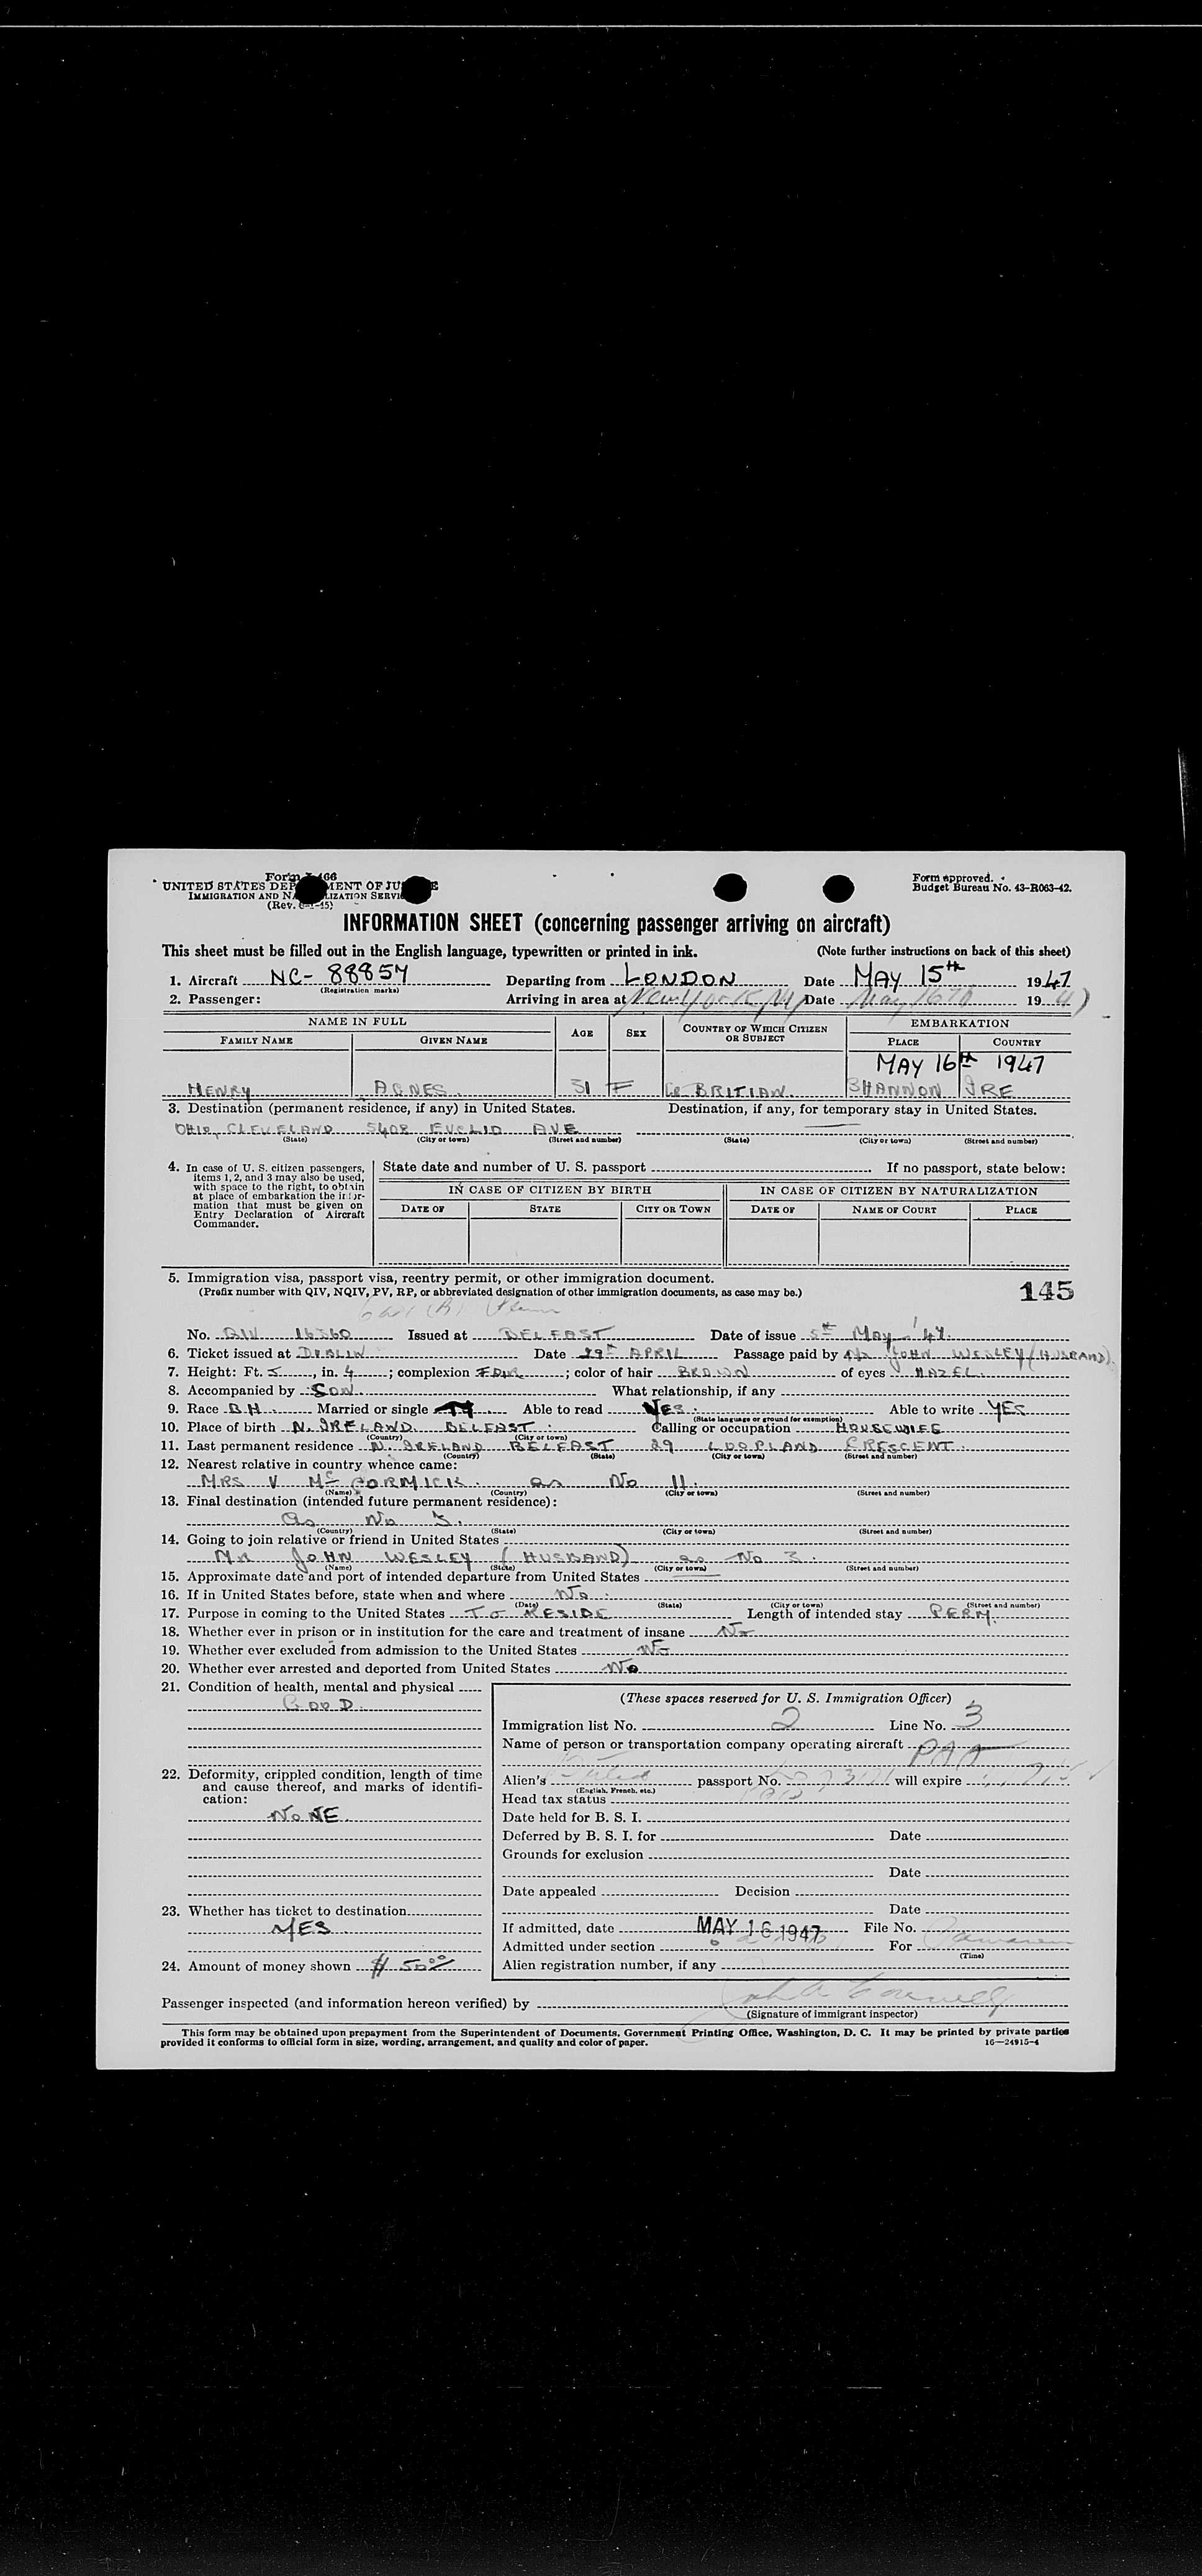 Form I-466
UNITED STATES DEPARTMENT OF JUSTICE
IMMIGRATION AND NATURALIZATION SERVICE
(Rev. 6-1-45)
Form approved.
Budget Bureau No. 43-R063-42.
INFORMATION SHEET (concerning passenger arriving on aircraft)
This sheet must be filled out in the English language, typewritten or printed in ink. (Note further instructions on back of this sheet)
1. Aircraft NC-88857 Departing from LONDON Date MAY 15th 1947
(Registration marks)
2. Passenger: Arriving in area at New York NY Date May 16th 1947
NAME IN FULL AGE SEX COUNTRY OF WHICH CITIZEN OR SUBJECT EMBARKATION
FAMILY NAME GIVEN NAME PLACE COUNTRY
MAY 16th 1947
HENRY AGNES 31 F G BRITIAN SHANNON IRE
3. Destination (permanent residence, if any) in United States. Destination, if any, for temporary stay in United States.
OHIO, CLEVELAND 5408 EUCLID AVE
(State) (City or town) (Street and number) (State) (City or town) (Street and number)
4. In case of U. S. citizen passengers, items 1, 2, and 3 may also be used, with space to the right, to obtain at place of embarkation the information that must be given on Entry Declaration of Aircraft Commander.
State date and number of U. S. passport If no passport, state below:
IN CASE OF CITIZEN BY BIRTH IN CASE OF CITIZEN BY NATURALIZATION
DATE OF STATE CITY OR TOWN DATE OF NAME OF COURT PLACE
5. Immigration visa, passport visa, reentry permit, or other immigration document.
(Prefix number with QIV, NQIV, PV, RP, or abbreviated designation of other immigration documents, as case may be.)
145
No. QIV 16360 Issued at BELFAST Date of issue 5th May '47
6. Ticket issued at DUBLIN Date 29th APRIL Passage paid by Mr JOHN WESLEY (HUSBAND)
7. Height: Ft. 5, in. 4; complexion FAIR; color of hair BROWN of eyes HAZEL
8. Accompanied by SON What relationship, if any
9. Race Married or single Able to read YES Able to write YES
(State language or ground for exemption)
10. Place of birth N. IRELAND BELFAST Calling or occupation HOUSEWIFE
(Country) (City or town)
11. Last permanent residence N. IRELAND BELFAST 29 LOOPLAND CRESCENT
(Country) (State) (City or town) (Street and number)
12. Nearest relative in country whence came:
MRS V McCORMICK as No 11.
(Name) (Country) (City or town) (Street and number)
13. Final destination (intended future permanent residence):
as No 3.
(Country) (State) (City or town) (Street and number)
14. Going to join relative or friend in United States
Mr JOHN WESLEY (HUSBAND) as No 3.
(Name) (State) (City or town) (Street and number)
15. Approximate date and port of intended departure from United States
16. If in United States before, state when and where No
(Date) (State) (City or town) (Street and number)
17. Purpose in coming to the United States To RESIDE Length of intended stay PERM.
18. Whether ever in prison or in institution for the care and treatment of insane No
19. Whether ever excluded from admission to the United States No
20. Whether ever arrested and deported from United States No
21. Condition of health, mental and physical
GOOD.
22. Deformity, crippled condition, length of time and cause thereof, and marks of identification:
NONE
23. Whether has ticket to destination
YES
24. Amount of money shown $ 50.00
(These spaces reserved for U. S. Immigration Officer)
Immigration list No. 2 Line No. 3
Name of person or transportation company operating aircraft PAA
Alien's passport No. will expire
(English, French, etc.)
Head tax status
Date held for B. S. I.
Deferred by B. S. I. for Date
Grounds for exclusion
Date
Date appealed Decision
Date
If admitted, date MAY 16 1947 File No.
Admitted under section For
(Time)
Alien registration number, if any
Passenger inspected (and information hereon verified) by
(Signature of immigrant inspector)
This form may be obtained upon prepayment from the Superintendent of Documents, Government Printing Office, Washington, D. C. It may be printed by private parties
provided it conforms to official form in size, wording, arrangement, and quality and color of paper. 16—24915-4